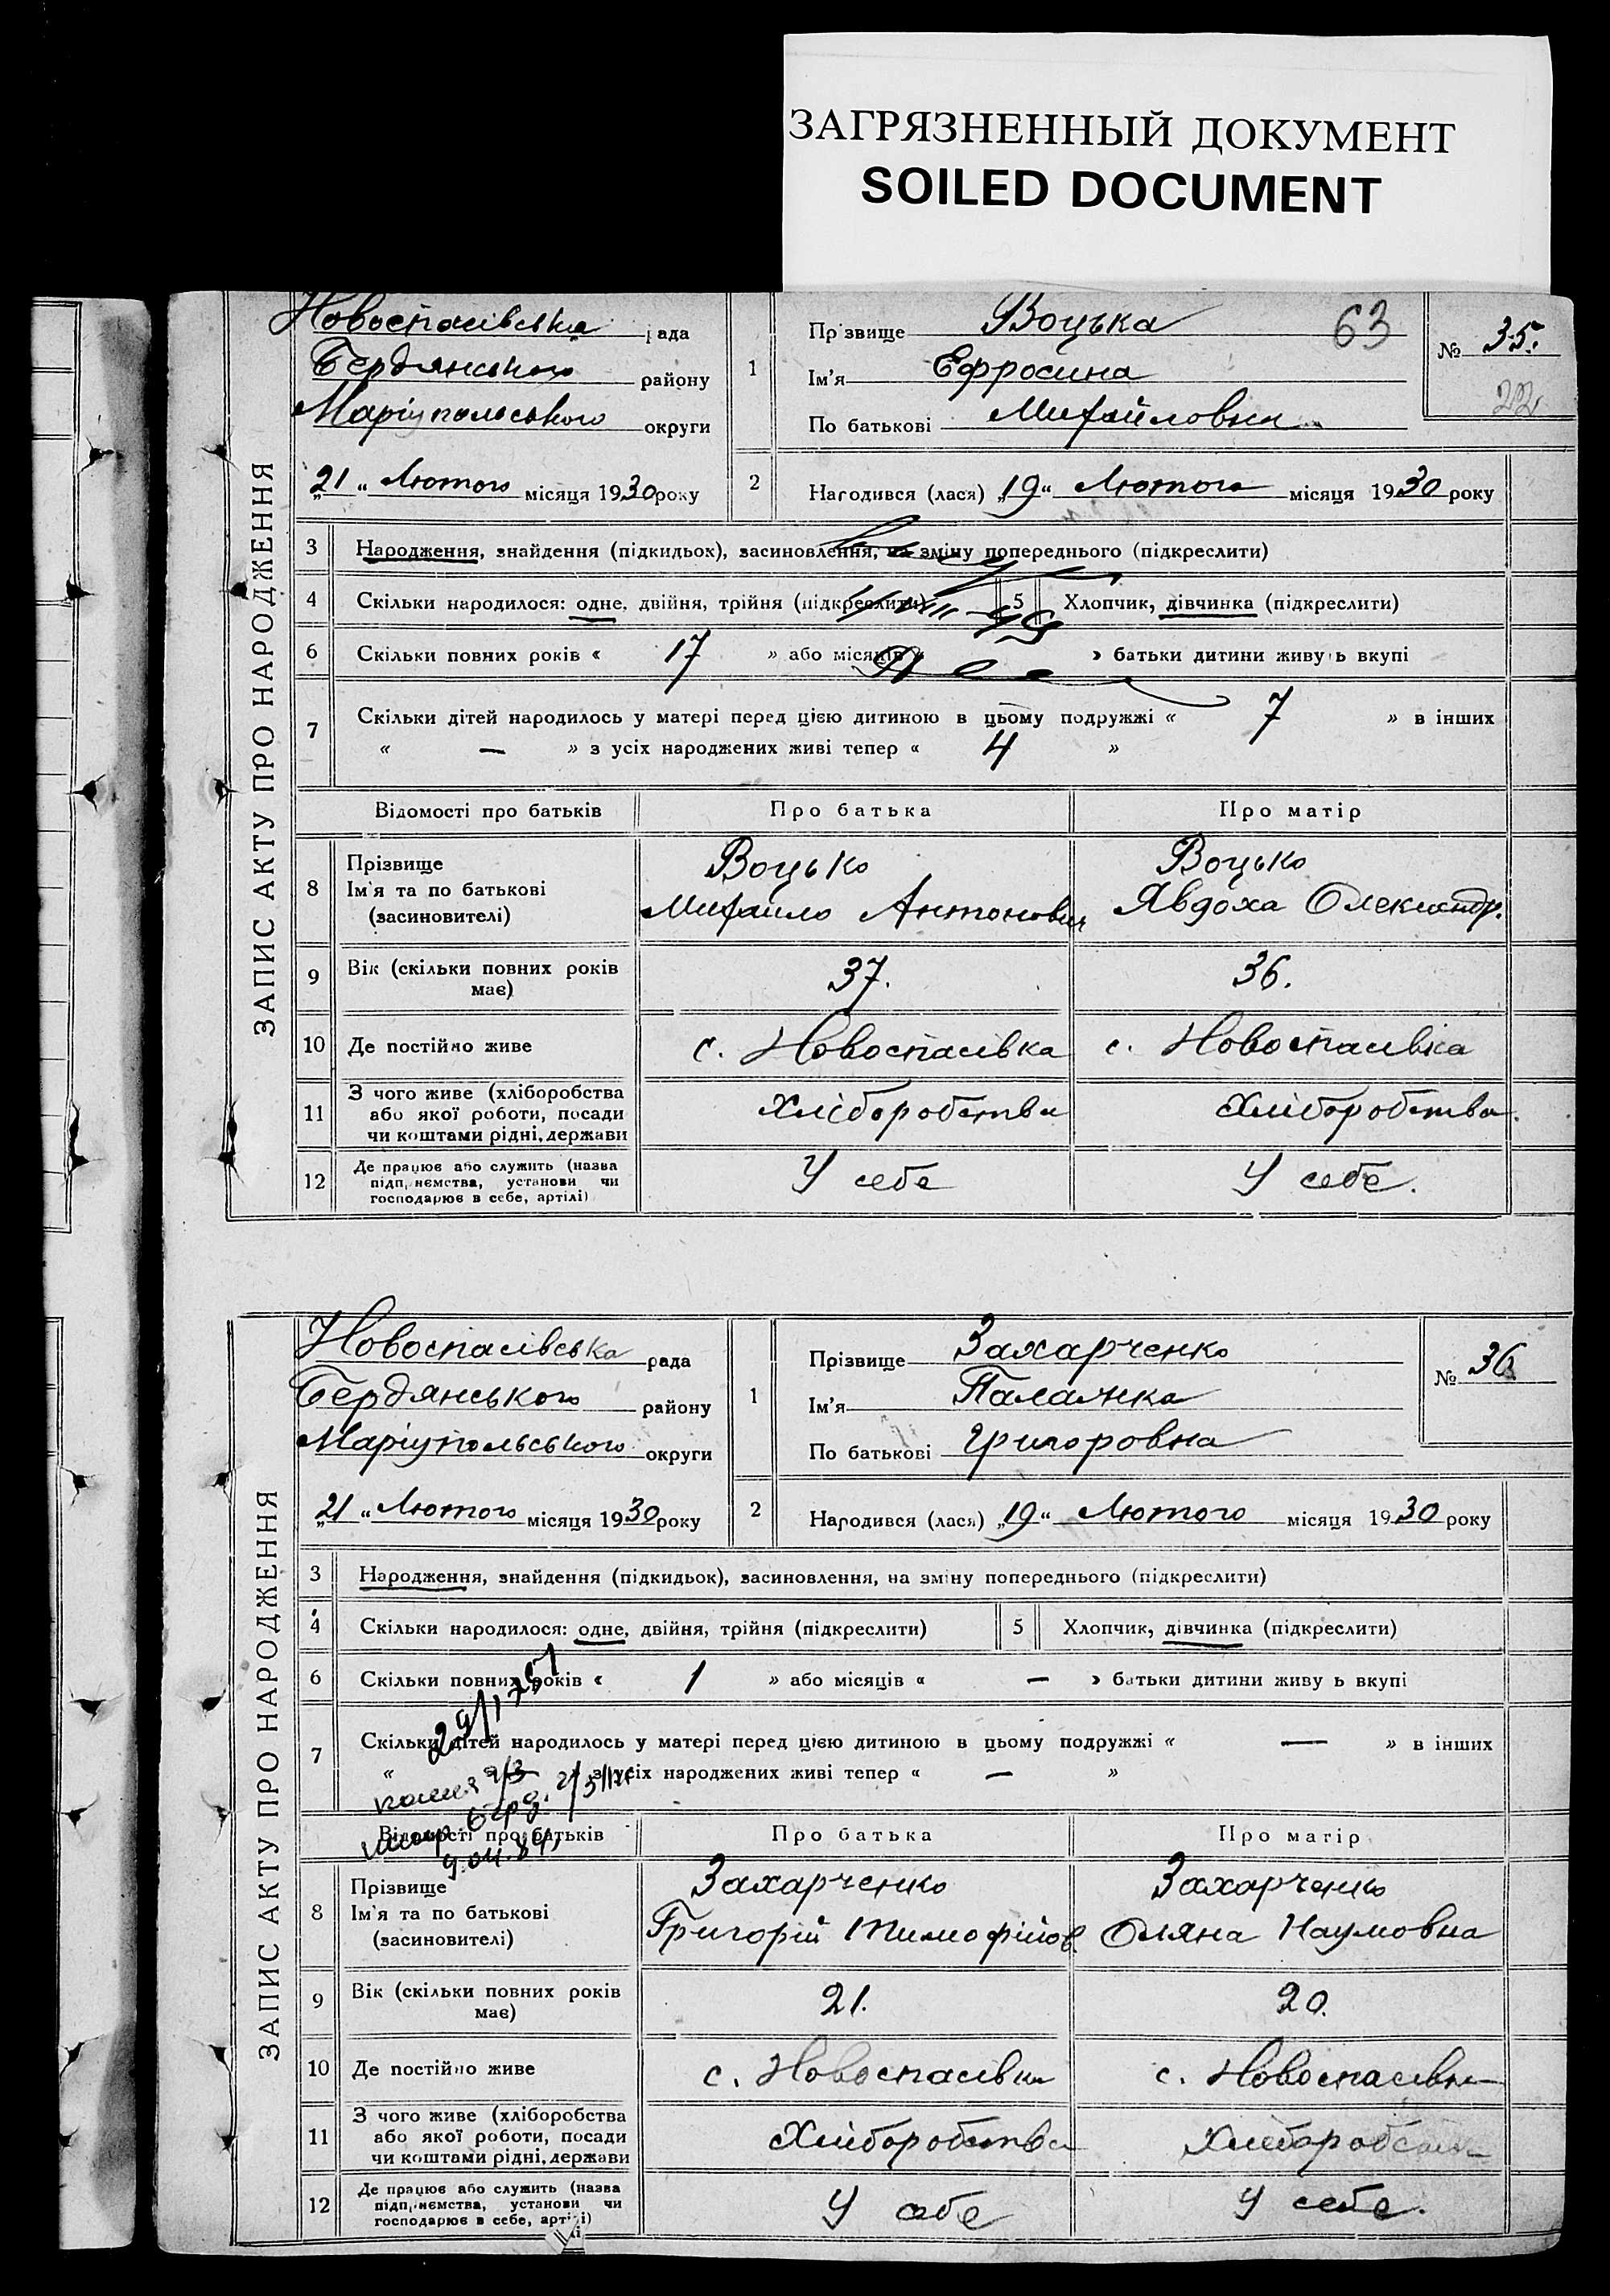 ЗАГРЯЗНЕННЫЙ ДОКУМЕНТ
SOILED DOCUMENT
ЗАПИС АКТУ ПРО НАРОДЖЕННЯ
Новоспасівська рада
Бердянського району
Маріупольського округи
„21“ Лютого місяця 1930 року
1
Прізвище Воцька
63
Ім'я Ефросина
По батькові Михайловна
№ 35.
22
2 Народився (лася) „19“ Лютого місяця 1930 року
3 Народження, знайдення (підкидьок), засиновлення, на зміну попереднього (підкреслити)
4 Скільки народилося: одне, двійня, трійня (підкреслити) 5 Хлопчик, дівчинка (підкреслити)
6 Скільки повних років « 17 » або місяців « » батьки дитини живуть вкупі
7 Скільки дітей народилось у матері перед цією дитиною в цьому подружжі « 7 » в інших
« — » з усіх народжених живі тепер « 4 »
Відомості про батьків Про батька Про матір
8 Прізвище Воцько Воцько
Ім'я та по батькові Михайло Антонович Явдоха Олександр.
(засиновителі)
9 Вік (скільки повних років має) 37. 36.
10 Де постійно живе с. Новоспасівка с. Новоспасівка
11 З чого живе (хліборобства
або якої роботи, посади Хліборобства Хліборобства
чи коштами рідні, держави
12 Де працює або служить (назва
підприємства, установи чи У себе У себе.
господарює в себе, артілі)
ЗАПИС АКТУ ПРО НАРОДЖЕННЯ
Новоспасівська рада
Бердянського району
Маріупольського округи
„21“ Лютого місяця 1930 року
1
Прізвище Захарченко
Ім'я Палажка
По батькові Григоровна
№ 36
2 Народився (лася) „19“ Лютого місяця 1930 року
3 Народження, знайдення (підкидьок), засиновлення, на зміну попереднього (підкреслити)
4 Скільки народилося: одне, двійня, трійня (підкреслити) 5 Хлопчик, дівчинка (підкреслити)
6 Скільки повних років « 1 » або місяців « — » батьки дитини живуть вкупі
7 Скільки дітей народилось у матері перед цією дитиною в цьому подружжі « — » в інших
« » з усіх народжених живі тепер « — »
Відомості про батьків Про батька Про матір
8 Прізвище Захарченко Захарченко
Ім'я та по батькові Григорій Тимофійов. Оляна Наумовна
(засиновителі)
9 Вік (скільки повних років має) 21. 20.
10 Де постійно живе с. Новоспасівка с. Новоспасівка
11 З чого живе (хліборобства
або якої роботи, посади Хліборобства Хліборобства
чи коштами рідні, держави
12 Де працює або служить (назва
підприємства, установи чи У себе У себе.
господарює в себе, артілі)